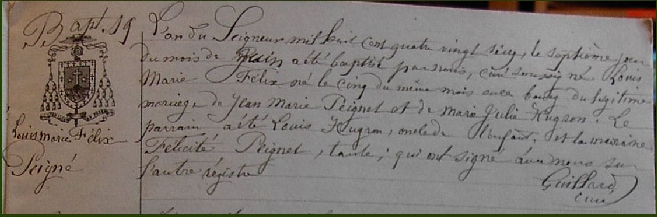 Bapt. 19
Louis Marie Félix
Peigné
L'an du Seigneur mil huit cent quatre vingt seize, le septième jour
du mois de Juin a été baptisé par nous, curé soussigné Louis
Marie Félix né le cinq du même mois au bourg du légitime
mariage de Jean Marie Peignet et de Marie Julie Hugron. Le
parrain a été Louis Hugron, oncle de l'enfant, et la marraine
Félicité Peignet, tante; qui ont signé avec nous sur
l'autre régistre
Guillard
curé